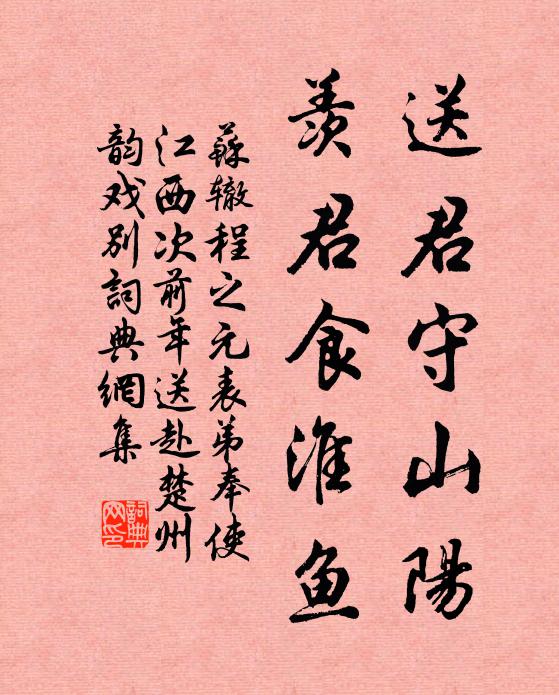 送君守山陽
羡君食淮鱼
蘇辙程之元表弟奉使
江西次前年送赴楚州
韵戏别詞典網集
詞典
网印